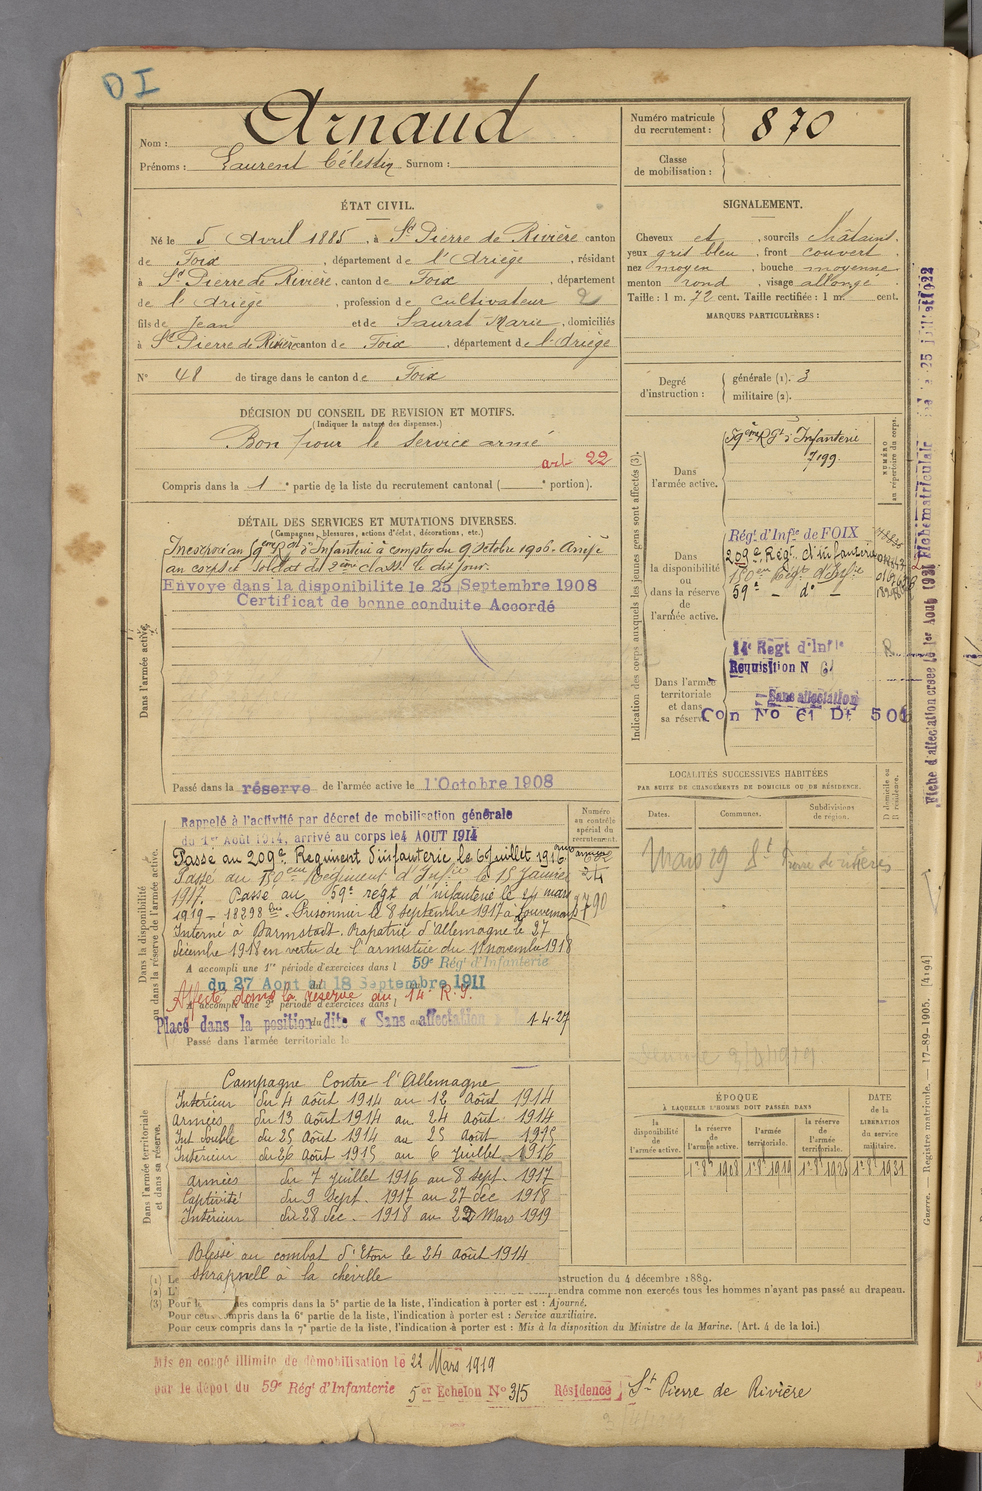 DI
Nom : Arnaud
Prénoms : Laurent Célestin Surnom :
Numéro matricule du recrutement : 870
Classe de mobilisation :
ÉTAT CIVIL.
Né le 5 Avril 1885, à St Pierre de Rivière canton
de Foix, département de l'Ariège, résidant
à St Pierre de Rivière, canton de Foix, département
de l'Ariège, profession de cultivateur 2
fils de Jean et de Saurat Marie, domiciliés
à St Pierre de Rivière canton de Foix, département de l'Ariège
N° 48 de tirage dans le canton de Foix
SIGNALEMENT.
Cheveux et, sourcils châtains.
yeux gris bleu, front couvert
nez moyen, bouche moyenne
menton rond, visage allongé
Taille : 1 m. 72 cent. Taille rectifiée : 1 m. cent.
MARQUES PARTICULIÈRES :
Degré d'instruction : générale (1). 3
militaire (2).
DÉCISION DU CONSEIL DE REVISION ET MOTIFS.
(Indiquer la nature des dispenses.)
Bon pour le service armé
art 22
Compris dans la 1e partie de la liste du recrutement cantonal ( e portion).
DÉTAIL DES SERVICES ET MUTATIONS DIVERSES.
(Campagnes, blessures, actions d'éclat, décorations, etc.)
Dans l'armée active.
Incorporé au 59ème Rgt d'Infanterie à compter du 9 Octobre 1906. Arrivé
au corps et soldat de 2ème classe le dit jour.
Envoye dans la disponibilite le 25 Septembre 1908
Certificat de bonne conduite Accordé
Passé dans la réserve de l'armée active le 1 Octobre 1908
Dans la disponibilité
ou dans la réserve de l'armée active.
Numéro
au contrôle
spécial du
recrutement.
Rappelé à l'activité par décret de mobilisation générale
du 1er Août 1914, arrivé au corps le 4 AOUT 1914
Passé au 209e Régiment d'infanterie le 6 juillet 1916.
Passé au 150eme Régiment d'Infie le 15 Janvier
1917. Passé au 59e régt d'infanterie le 24 mars
1919 – 18298 bis. Prisonnier le 8 septembre 1917 à Louvemont
Interné à Darmstadt. Rapatrié d'Allemagne le 27
décembre 1918 en vertu de l'armistice du 11 novembre 1918
A accompli une 1re période d'exercices dans l 59e Rég d'Infanterie
du 27 Aout au 18 Septembre 1911
Affecté dans la réserve du 14e R.I.
A accompli une 2e période d'exercices dans l
Placé dans la position dite « Sans affectation » le 1-4-27
Passé dans l'armée territoriale le
Dans l'armée territoriale
et dans sa réserve.
Campagne Contre l'Allemagne
Intérieur du 4 août 1914 au 12 Août 1914
armées du 13 Août 1914 au 24 Août 1914
Int double du 25 Août 1914 au 25 Août 1915
Intérieur du 26 Août 1915 au 6 juillet 1916
armées du 7 juillet 1916 au 8 sept. 1917
Captivité du 9 Sept. 1917 au 27 dec 1918
Intérieur du 28 dec. 1918 au 22 Mars 1919
Blessé au combat d'Eton le 24 août 1914
shrapnell à la cheville
Indication des corps auxquels les jeunes gens sont affectés (3).
NUMÉRO
au répertoire du corps.
Dans l'armée active.
59ème Rgt d'Infanterie
7199
Dans la disponibilité ou dans la réserve de l'armée active.
Régt d'Infie de FOIX
209e Régt d'infanterie
150eme Régt d'Infie
59e – do –
Dans l'armée territoriale et dans sa réserve.
14e Regt d'Infie
Requisition N 61
Sans affectation
Con No 61 Dt 506
LOCALITÉS SUCCESSIVES HABITÉES
PAR SUITE DE CHANGEMENTS DE DOMICILE OU DE RÉSIDENCE.
Dates.
Communes.
Subdivisions de région.
D domicile ou R résidence.
Mars 29 St Pierre de rivière
ÉPOQUE
À LAQUELLE L'HOMME DOIT PASSER DANS
la disponibilité de l'armée active.
la réserve de l'armée active.
l'armée territoriale.
la réserve de l'armée territoriale.
DATE de la LIBÉRATION du service militaire.
1er 8bre 1908
1er 8bre 1919
1er 8bre 1925
1er 8bre 1931
Fiche d'affectation créée le 1er Août 1921 Fiche matriculaire le 25 juillet 1922
Guerre. — Registre matricule. — 17-89-1905. [4194]
(1) Le
instruction du 4 décembre 1889.
(2) L'
endra comme non exercés tous les hommes n'ayant pas passé au drapeau.
(3) Pour les compris dans la 5e partie de la liste, l'indication à porter est : Ajourné.
Pour ceux compris dans la 6e partie de la liste, l'indication à porter est : Service auxiliaire.
Pour ceux compris dans la 7e partie de la liste, l'indication à porter est : Mis à la disposition du Ministre de la Marine. (Art. 4 de la loi.)
Mis en congé illimité de démobilisation le 22 Mars 1919
par le dépot du 59e Rég d'Infanterie 5er Echelon No 315 Résidence St Pierre de Rivière